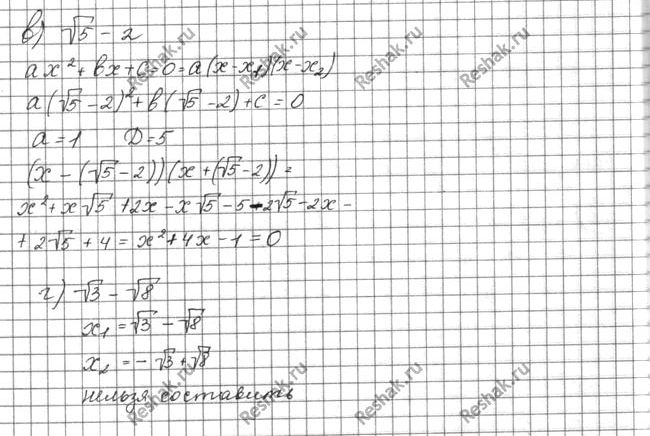 в) √5 - 2
ax² + bx + c = 0 = a(x-x₁)(x-x₂)
a(√5-2)² + b(√5-2) + c = 0
a=1 D=5
(x-(√5-2))(x+(√5-2)) =
x² + x√5 + 2x - x√5 - 5 - 2√5 - 2x -
+ 2√5 + 4 = x² + 4x - 1 = 0
г) √3 - √8
x₁ = √3 - √8
x₂ = -√3 + √8
нельзя составить
Reshak.ru
Reshak.ru
Reshak.ru
Reshak.ru
Reshak.ru
Reshak.ru
Reshak.ru
Reshak.ru
Reshak.ru